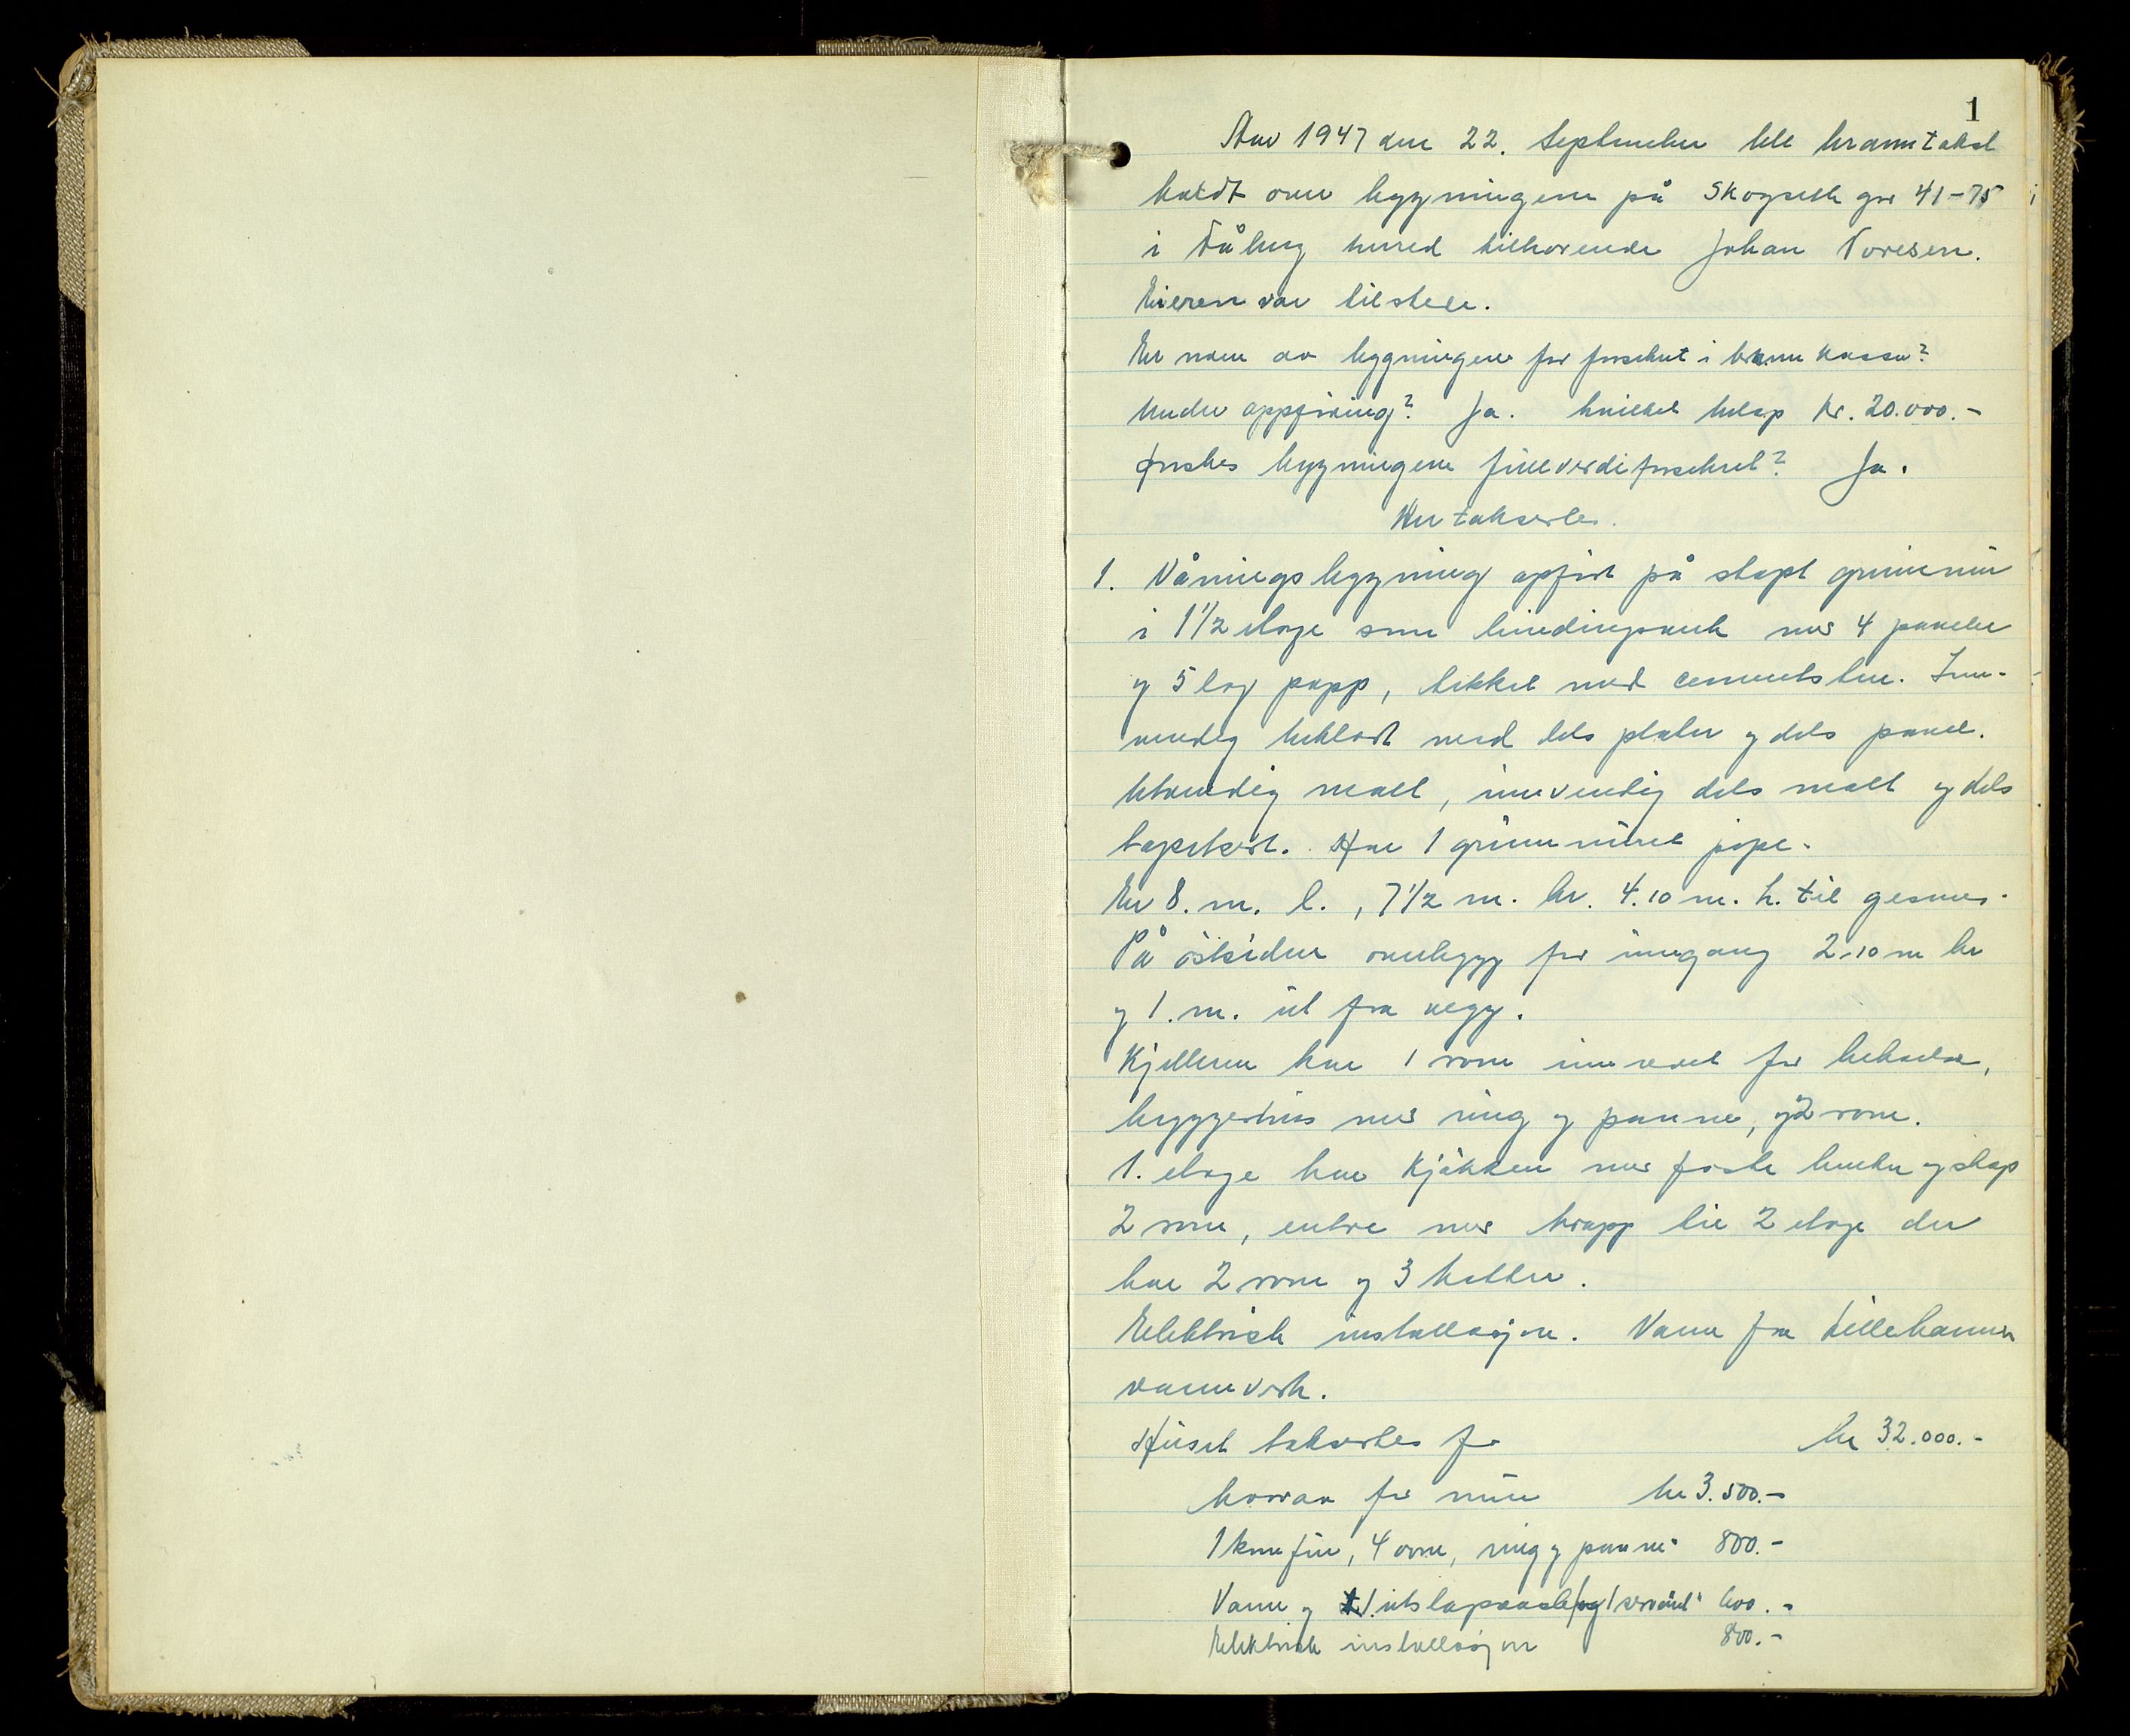 1
Aar 1947 den 22. September ble branntakst
holdt over bygningene på Skogseth gnr 41-75
i Fåberg herred tilhørende Johan Toresen.
Eieren var tilstede.
Er noen av bygningene før forsikret i brannkassa?
Under oppføring? Ja. hvilket beløp Kr. 20.000.-
Ønskes bygningene fullverdiforsikret? Ja.
Der takserles.
1. Våningsbygning opført på støpt grunnmur
i 1 1/2 etage som bindingsverk med 4 paneler
og 5 lag papp, tekket med cementsten. Inn-
vendig bekledt med dels plater og dels panel.
Utvendig malt, innvendig dels malt og dels
tapetsert. Har 1 grunnmuret pipe.
Er 8. m. l., 7 1/2 m. br. 4.10 m. h. til gesims.
På östsiden overbygg for inngang 2.10 m br
og 1. m. ut fra vegg.
Kjelleren har 1 rom innredet for beboelse,
bryggerhus med ring og panne, og 2 rom.
1. etage har Kjökken med faste benker og skap
2 rom, entre med trapp til 2 etage der
har 2 rom og 3 kotter.
Elektrisk installasjon. Vann fra Lillehammer
vannverk.
Huset takserles for kr 32.000.-
hvorav for mur kr 3.500.-
1 komfur, 4 ovne, ring og panne " 800.-
Vann og 1 utslagsvask og 1 servant " 600.-
Elektrisk installasjon 800.-